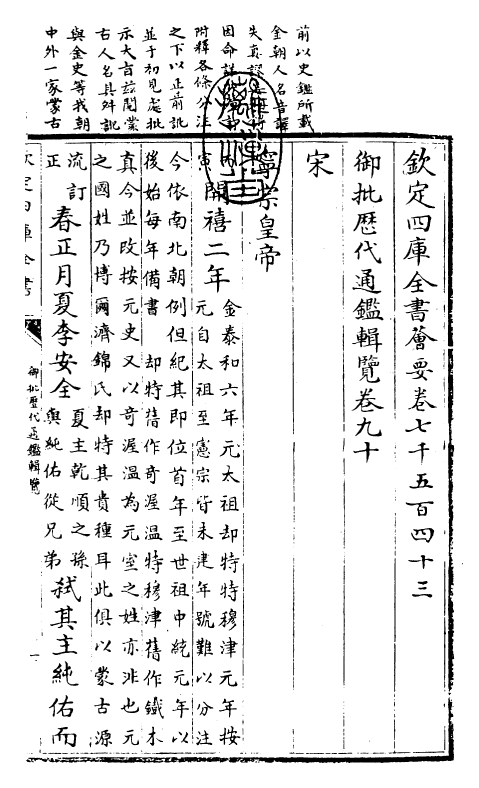 前以史鑑所載
金朝人名音譯
失真
因命詳
附釋各條分注
之下以正前訛
並于初見處批
示大旨茲閱蒙
古人名具舛訛
與金史等我朝
中外一家蒙古
欽定四庫全書薈要卷七千五百四十三
御批歷代通鑑輯覽卷九十
宋
寧宗皇帝
寅開禧二年
金泰和六年元太祖却特特穆津元年按
元自太祖至憲宗皆未建年號難以分注
今依南北朝例但紀其即位首年至世祖中統元年以
後始每年備書 却特舊作奇渥温特穆津舊作鐵木
真今並改按元史又以奇渥温為元室之姓亦非也元
之國姓乃博爾濟錦氏却特其貴種耳此俱以蒙古源
流訂
正
春正月夏李安全
夏主乾順之孫
與純佑從兄弟
弑其主純佑而
欽定四庫全書
御批歷代通鑑輯覽
一